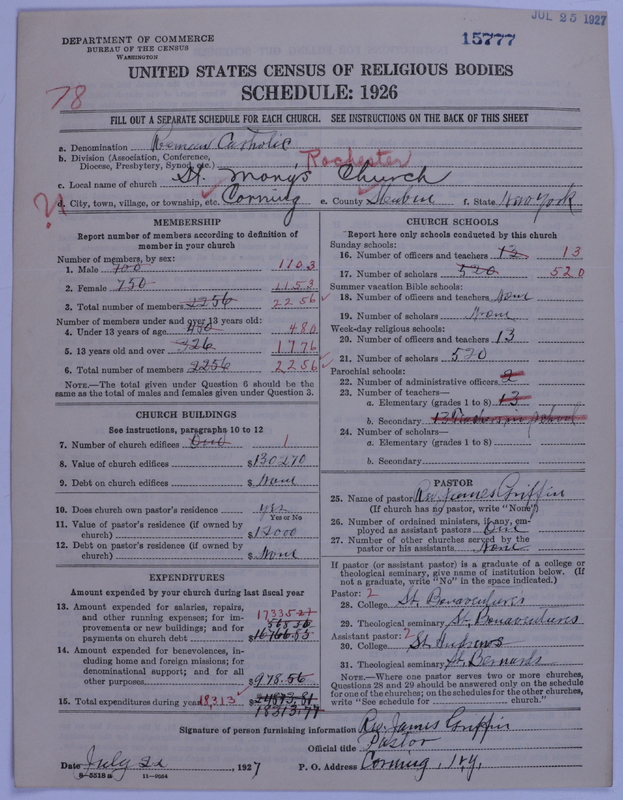 JUL 25 1927
DEPARTMENT OF COMMERCE
BUREAU OF THE CENSUS
WASHINGTON
15777
UNITED STATES CENSUS OF RELIGIOUS BODIES
SCHEDULE: 1926
78
FILL OUT A SEPARATE SCHEDULE FOR EACH CHURCH. SEE INSTRUCTIONS ON THE BACK OF THIS SHEET
a. Denomination Roman Catholic
b. Division (Association, Conference, Diocese, Presbytery, Synod, etc.) Rochester
c. Local name of church St. Mary's Church
d. City, town, village, or township, etc. Corning e. County Steuben f. State New York
MEMBERSHIP
Report number of members according to definition of member in your church
Number of members, by sex:
1. Male 700 1103
2. Female 750 1153
3. Total number of members 2256 2256
Number of members under and over 13 years old:
4. Under 13 years of age 480 480
5. 13 years old and over 926 1776
6. Total number of members 2256 2256
NOTE.—The total given under Question 6 should be the same as the total of males and females given under Question 3.
CHURCH BUILDINGS
See instructions, paragraphs 10 to 12
7. Number of church edifices One 1
8. Value of church edifices $130270
9. Debt on church edifices $None
10. Does church own pastor's residence yes
Yes or No
11. Value of pastor's residence (if owned by church) $12000
12. Debt on pastor's residence (if owned by church) $None
EXPENDITURES
Amount expended by your church during last fiscal year
13. Amount expended for salaries, repairs, and other running expenses; for improvements or new buildings; and for payments on church debt 17335-21
14. Amount expended for benevolences, including home and foreign missions; for denominational support; and for all other purposes $978.56
15. Total expenditures during year 18,313 $
18313.77
CHURCH SCHOOLS
Report here only schools conducted by this church
Sunday schools:
16. Number of officers and teachers 13 13
17. Number of scholars 520 520
Summer vacation Bible schools:
18. Number of officers and teachers None
19. Number of scholars None
Week-day religious schools:
20. Number of officers and teachers 13
21. Number of scholars 520
Parochial schools:
22. Number of administrative officers 2
23. Number of teachers—
a. Elementary (grades 1 to 8) 13
b. Secondary 13 Teachers in school
24. Number of scholars—
a. Elementary (grades 1 to 8)
b. Secondary
PASTOR
25. Name of pastor Rev. James Griffin
(If church has no pastor, write "None")
26. Number of ordained ministers, if any, employed as assistant pastors One
27. Number of other churches served by the pastor or his assistants None
If pastor (or assistant pastor) is a graduate of a college or theological seminary, give name of institution below. (If not a graduate, write "No" in the space indicated.)
Pastor: 2
28. College St. Bonaventures
29. Theological seminary St. Bonaventures
Assistant pastor: 2
30. College St. Andrews
31. Theological seminary St. Bernards
NOTE.—Where one pastor serves two or more churches, Questions 28 and 29 should be answered only on the schedule for one of the churches; on the schedules for the other churches, write "See schedule for church."
Signature of person furnishing information Rev. James Griffin
Official title Pastor
Date July 22, 1927 P. O. Address Corning, N.Y.
8-5518a 11-9054